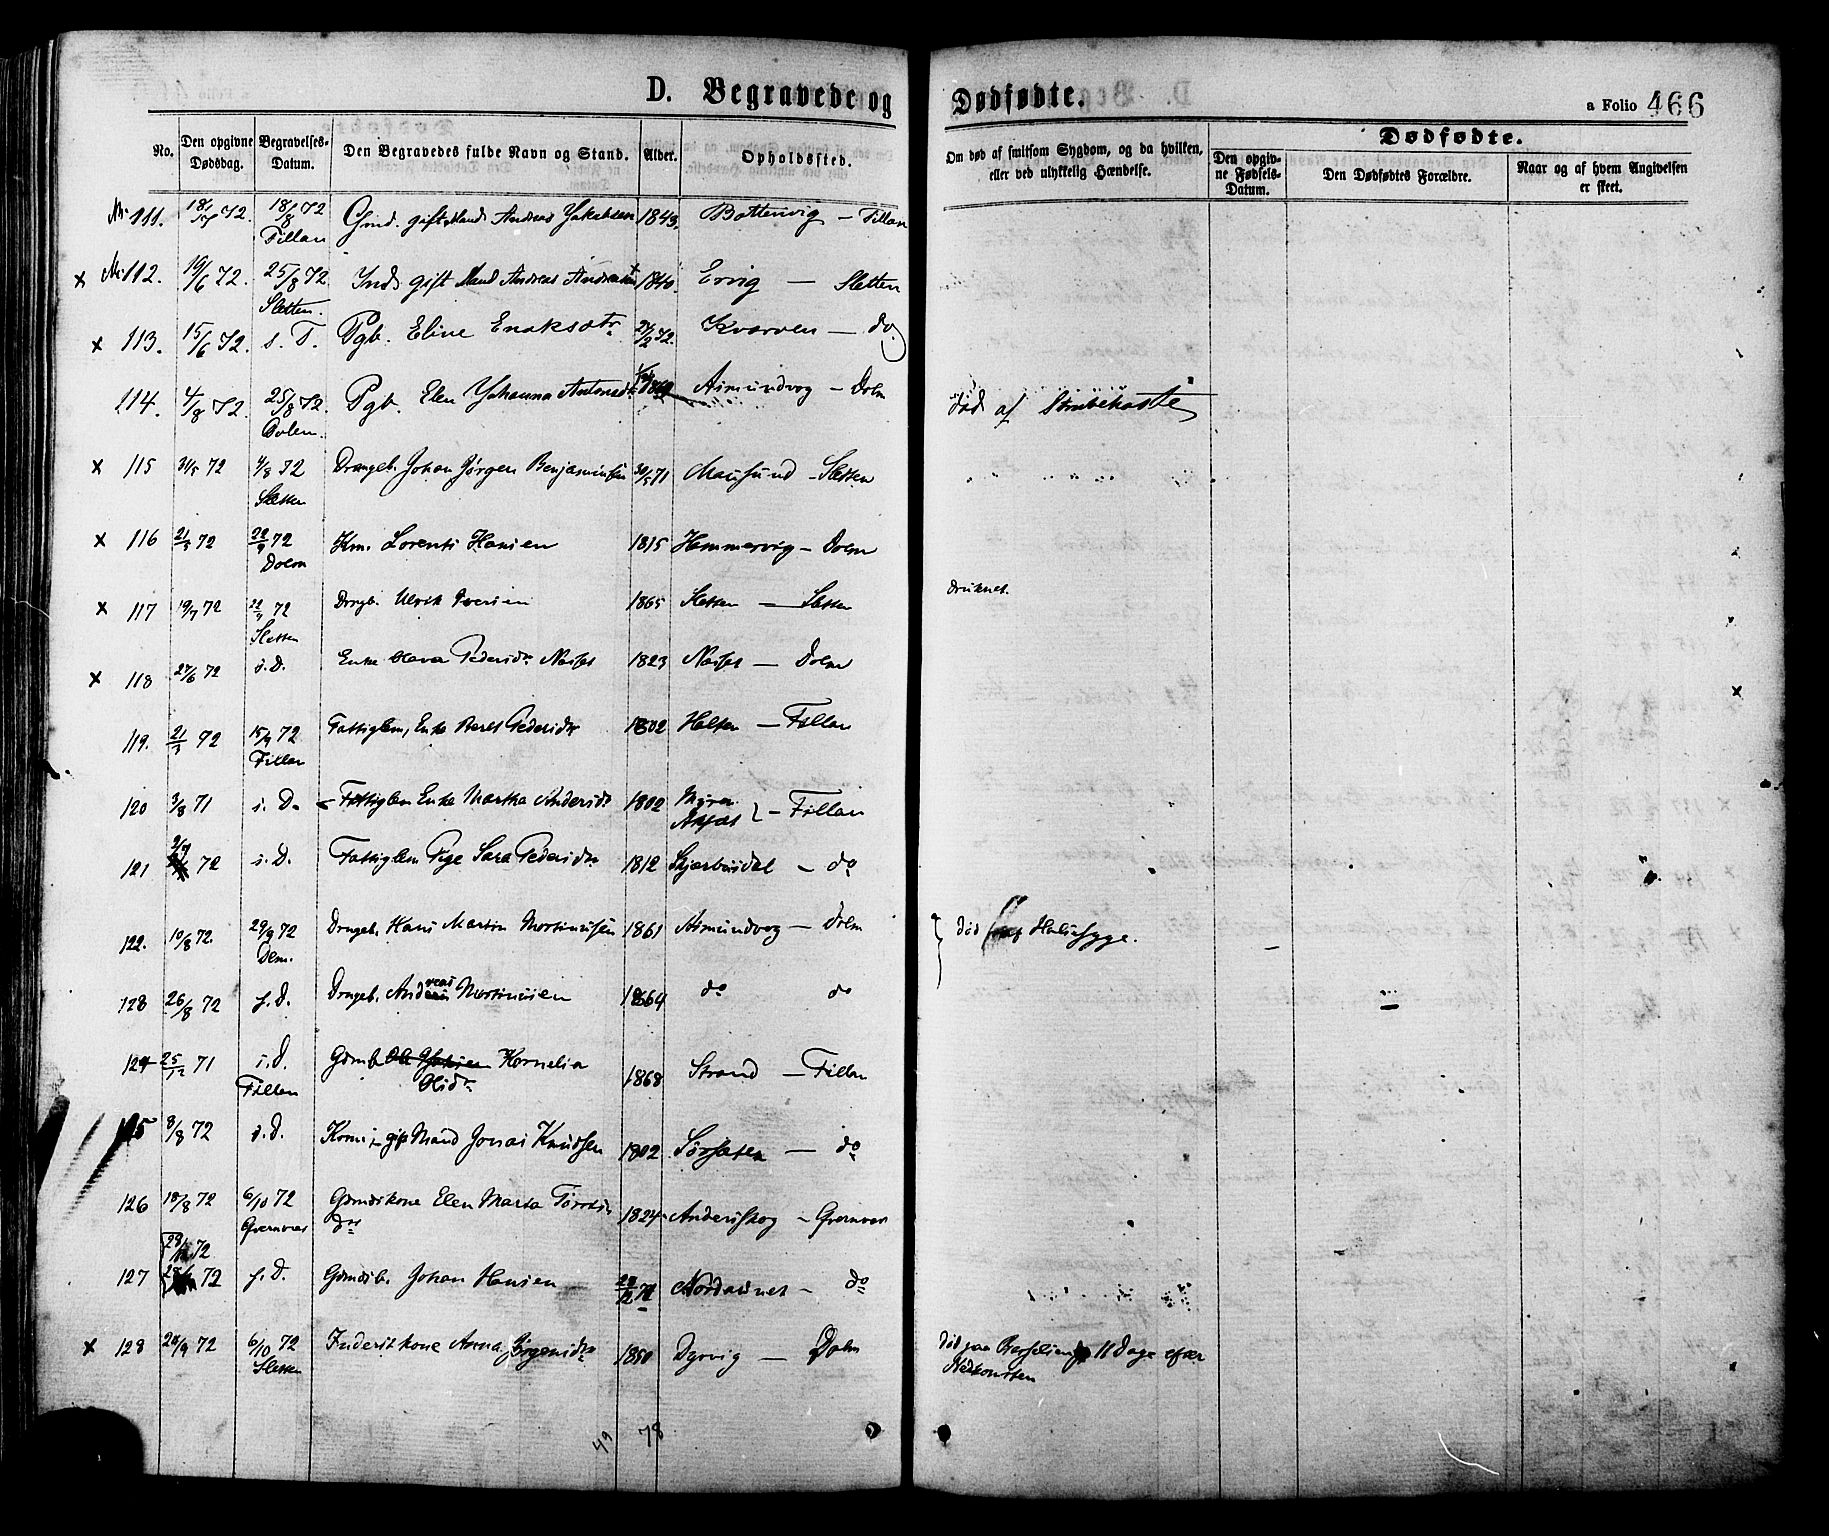 D. Begravede og Dødfødte.
a Folio 466
No. Den opgivne Dødsdag. Begravelses-Datum. Den Begravedes fulde Navn og Stand. Alder. Opholdssted.
Om død af smitsom Sygdom, og da hvilken, eller ved ulykkelig Hændelse.
Dødfødte.
Den opgivne Fødsels-Datum. Den Dødfødtes Forældre. Naar og af hvem Angivelsen er skeet.
No 111. 18/7 72. 18/8 72 gift Mand Andreas Jakobsen 1843. Bottenvig — Fillan
Fillan
x No 112. 19/6 72. 25/8 72 Inds. gift Mand Andreas 1840. Ervig — Sletten
Sletten.
x 113. 15/6 72. s. D. Pgb. Eline Enoksdtr 27/2 72. Kvarven — do
114. 4/8 72. 25/8 72. Pgb. Elen Johanna Asmundvog — Dolm død af Strubehoste
Dolm.
x 115 31/5 72 4/8 72 Drengeb. Johan Jørgen Benjaminsen 30/5 71 Mausund — Sletten
Sletten
x 116 21/5 72 22/9 72 Km. Lorents Hansen 1815 Hammervig — Dolm
Dolm
x 117 19/7 72 22/9 72 Drngb. Ulrik Iversen 1865 Sletten — Sletten druknet.
Sletten
x 118 27/6 72 s. D. Enke Pedersdr 1823 — Dolm
119. 21/3 72 15/9 72 Fattiglem, Enke Beret Pedersdr 1802 Holten — Fillan
Fillan
120 3/8 71 s. D. Fattiglem Enke Martha Andersdr 1802 Myren — Fillan
121 72 s. D. Fattiglem Pige Sara Pedersdr 1812 Skjærbusdal — do
122. 10/8 72. 29/9 72 Drngeb. Hans Martin Mortinussen 1861 Asmundvog — Dolm død af Halssyge.
Dlm.
123 26/8 72 s. D. Drngeb. Mortinussen 1864 do do
124 25/12 71 s. D. Gdmb. Kornelia 1868 Strand — Fillan
Fillan Olsdr.
125 8/8 72 s. D. gift Mand Jonas Knudsen 1802 Sørsæter — do
126 18/8 72 6/10 72 Gdmdskone Elen Marta 1824. Anderskog — Qvernvær
Qvernvær
28/12 72
127 72 s. D. Gdmdsb. Johan Hansen Nordaunet — do
x 128 24/9 72 6/10 72 Inderstkone Anna Børgesdr 1850 Dyrvig — Dolm død paa Barselseng 11 Dage efter
Sletten Nedkomsten
49 78